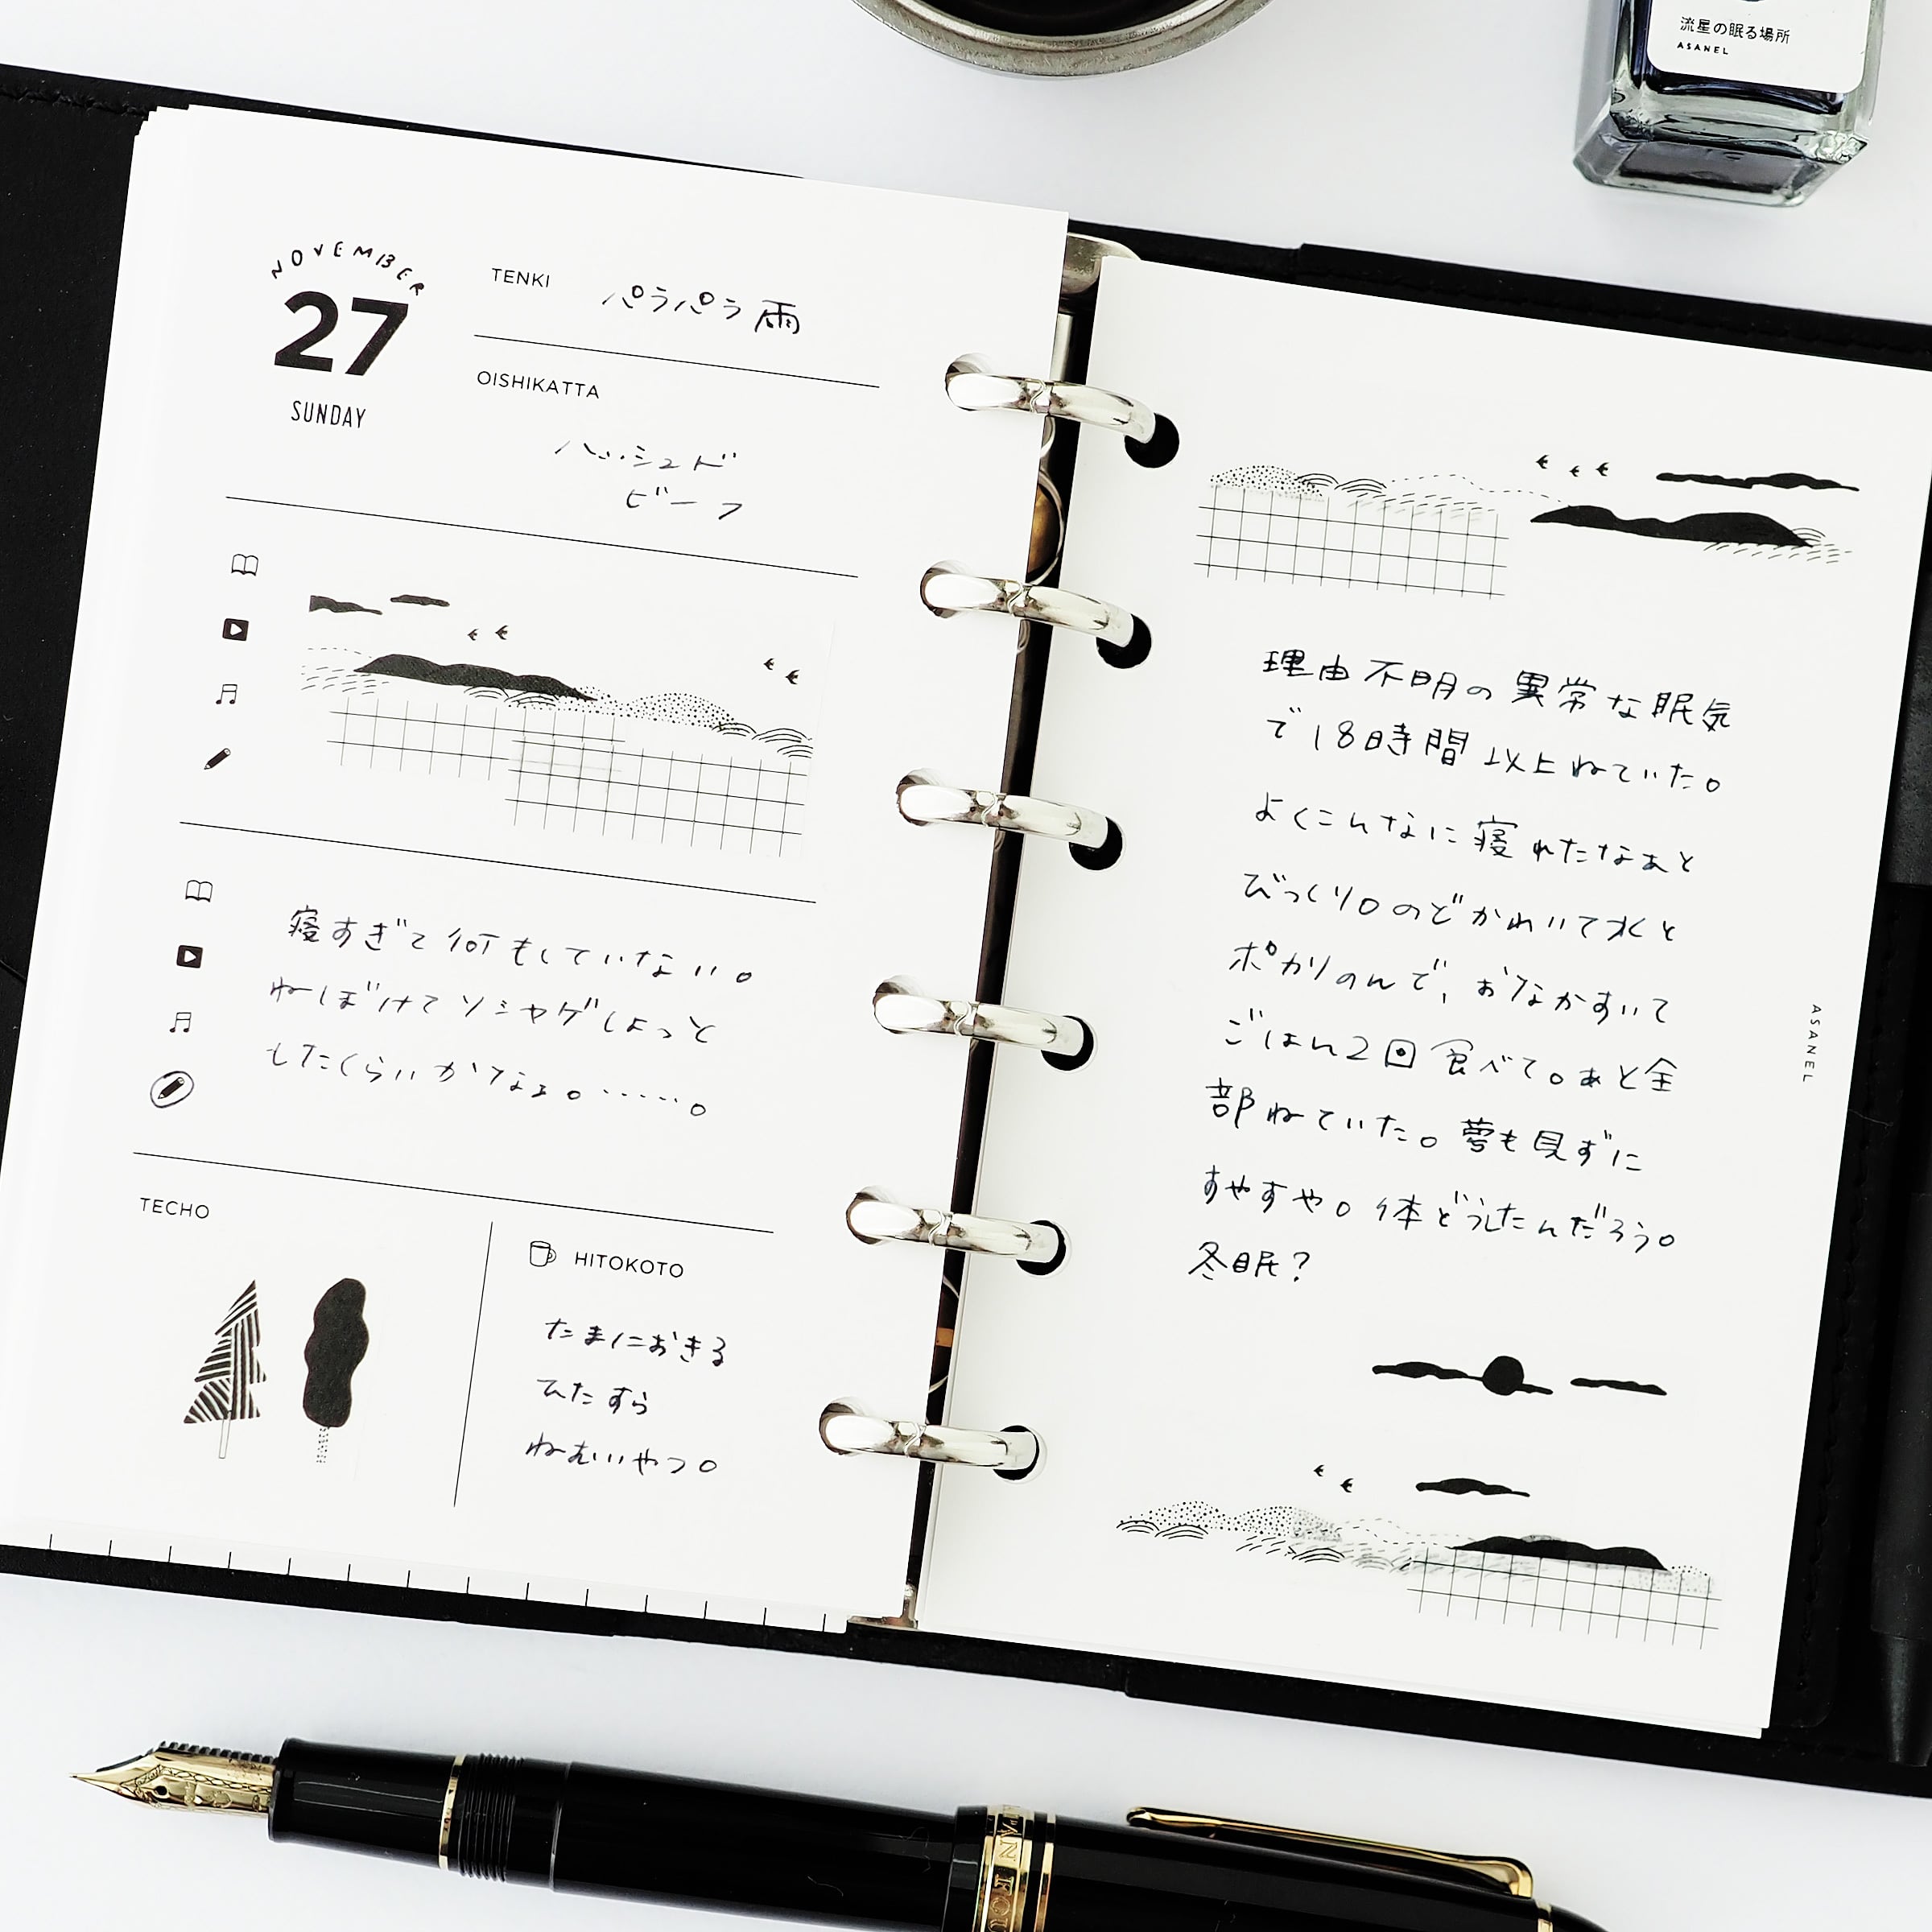 流星の眠る場所
ASANEL
NOVEMBER
27
SUNDAY
TENKI
パラパラ雨
OISHIKATTA
ハッシュド
ビーフ
寝すぎて何もしていない。
ねぼけてソシャゲしよっと
したくらいかなぁ。……。
TECHO
HITOKOTO
たまにおきる
ひたすら
ねむいやつ。
理由不明の異常な眠気
で18時間以上ねていた。
よくこんなに寝れたなぁと
びっくり。のどかわいて水と
ポカリのんで、おなかすいて
ごはん2回食べて。あと全
部ねていた。夢も見ずに
すやすや。体どうしたんだろう。
冬眠?
ASANEL